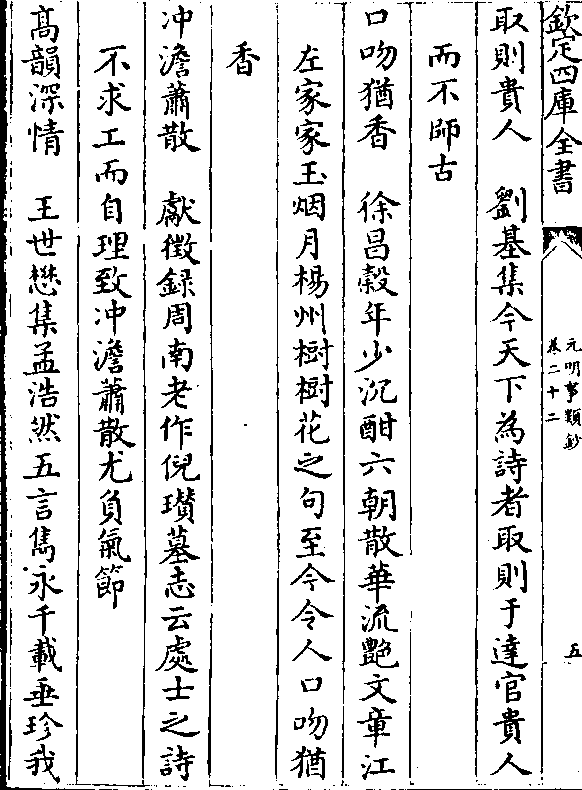 欽定四庫全書
元明事類鈔
卷二十二
五
取則貴人　劉基集今天下為詩者取則于達官貴人
而不師古
口吻猶香　徐昌穀年少沉酣六朝散華流艷文章江
左家家玉烟月楊州樹樹花之句至今令人口吻猶
香
冲澹蕭散　獻徵録周南老作倪瓚墓志云處士之詩
不求工而自理致冲澹蕭散尤負氣節
髙韻深情　王世懋集孟浩然五言雋永千載垂珍我